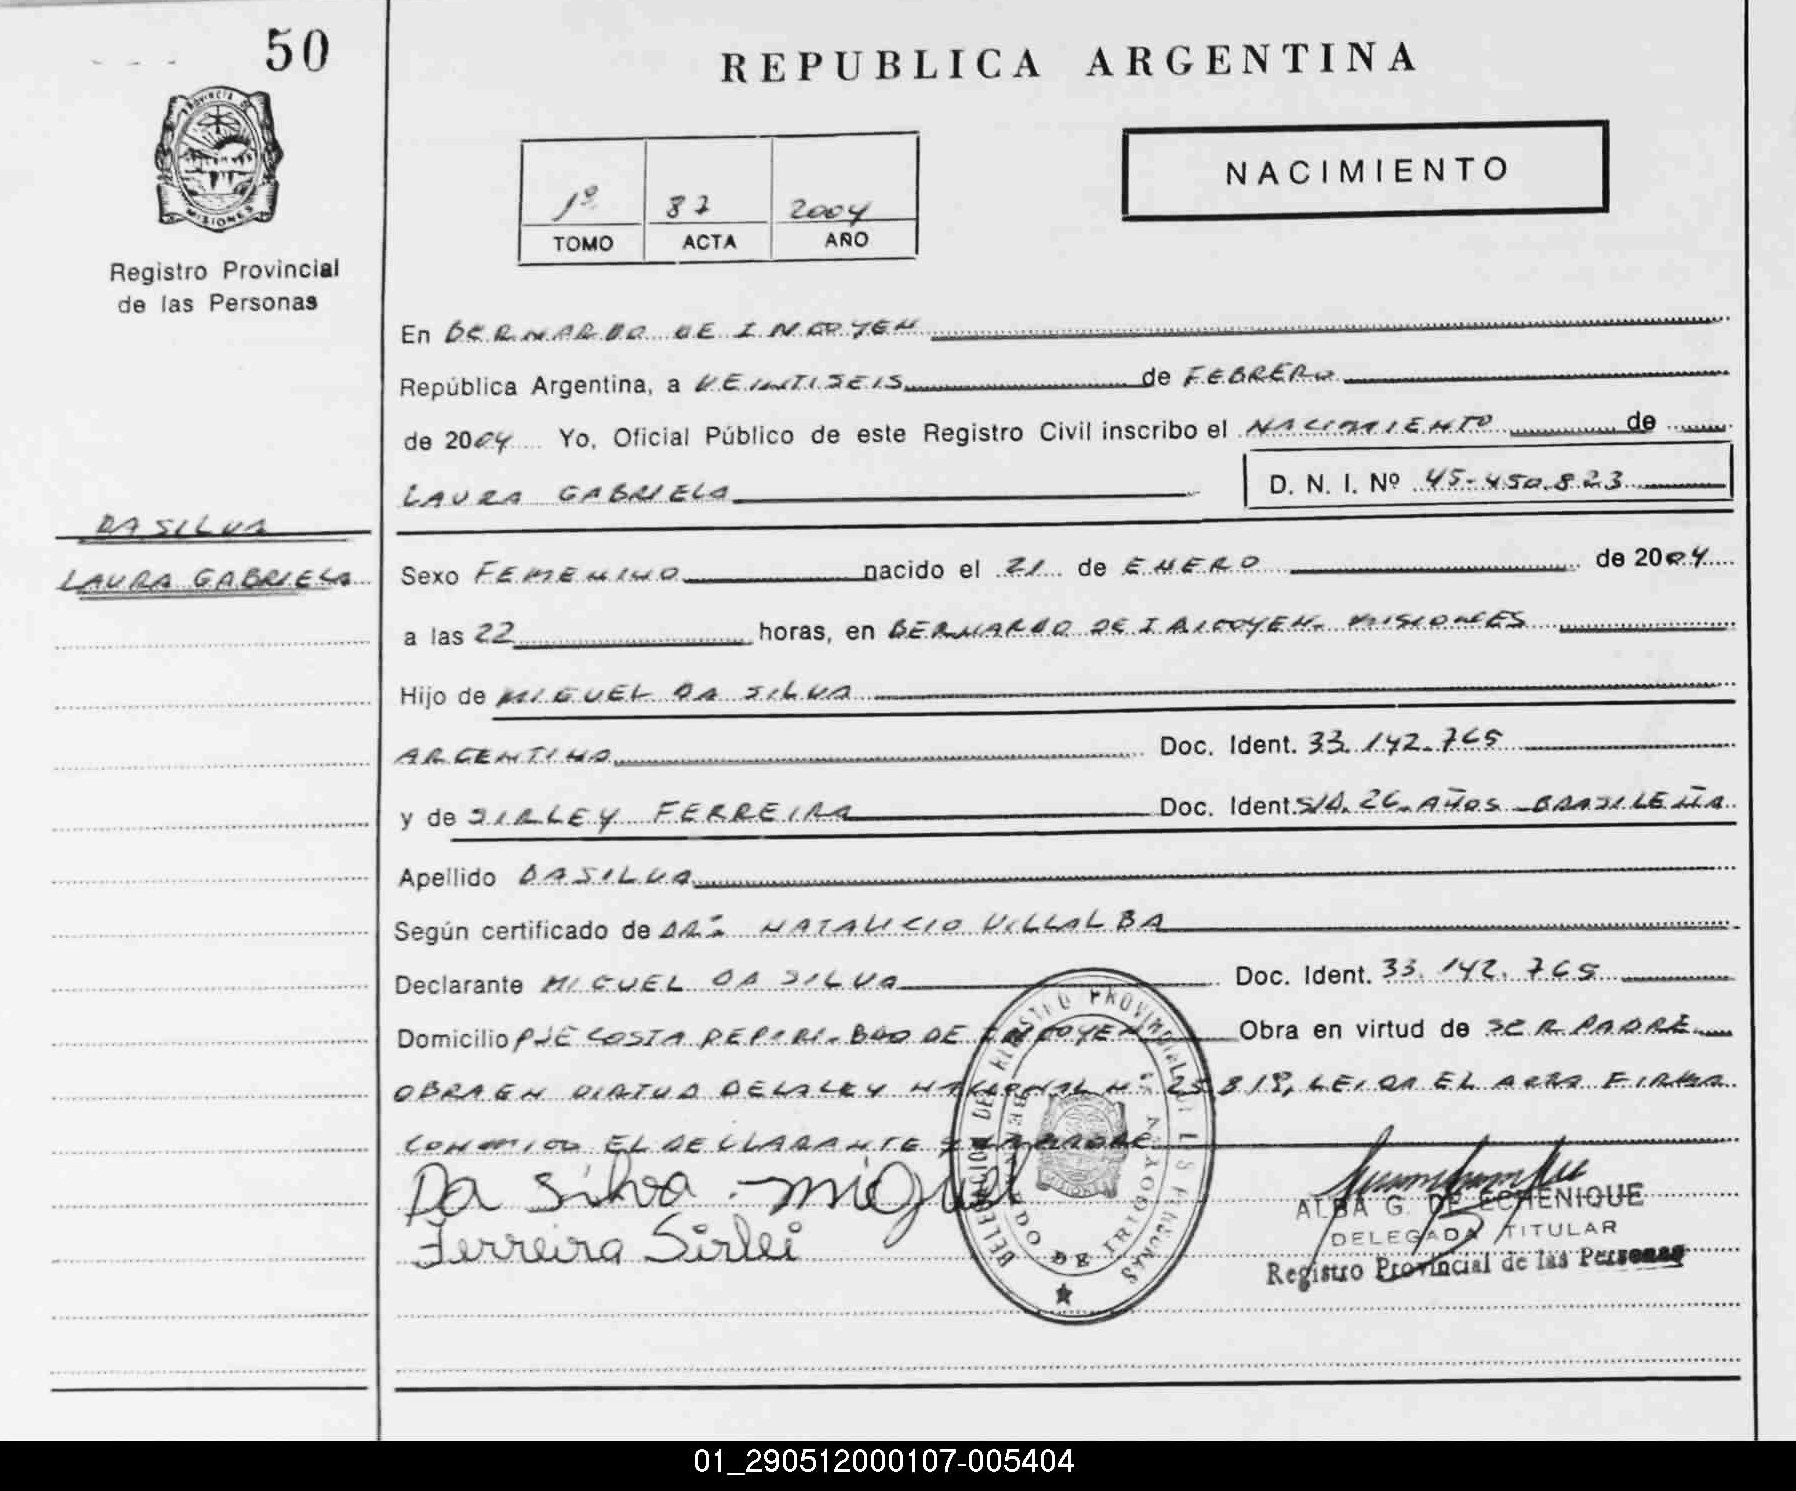 50
REPUBLICA ARGENTINA
PROVINCIA DE
MISIONES
NACIMIENTO
1º 87 2004
TOMO ACTA AÑO
Registro Provincial
de las Personas
En BERNARDO DE IRIGOYEN
República Argentina, a VEINTISEIS de FEBRERO
de 2004 Yo, Oficial Público de este Registro Civil inscribo el NACIMIENTO de
LAURA GABRIELA D. N. I. Nº 45-450.823
DA SILVA
LAURA GABRIELA
Sexo FEMENINO nacido el 21 de ENERO de 2004
a las 22 horas, en BERNARDO DE IRIGOYEN. MISIONES
Hijo de MIGUEL DA SILVA
ARGENTINO Doc. Ident. 33.142.765
y de SIRLEY FERREIRA Doc. Ident. S/D. 26. AÑOS - BRASILEÑA
Apellido DA SILVA
Según certificado de DR: NATALICIO VILLALBA
Declarante MIGUEL DA SILVA Doc. Ident. 33.142.765
Domicilio PJE COSTA PEPIRI. BDO DE IRIGOYEN Obra en virtud de SER PADRE
OBRA EN VIRTUD DE LA LEY NACIONAL Nº 25.818, LEIDA EL ACTA FIRMA
CONMIGO EL DECLARANTE Y LA MADRE
Da Silva Miguel
Ferreira Sirlei
DELEGACION DEL REGISTRO PROVINCIAL DE LAS PERSONAS
BERNARDO DE IRIGOYEN
ALBA G. DE ECHENIQUE
DELEGADA TITULAR
Registro Provincial de las Personas
01_290512000107-005404